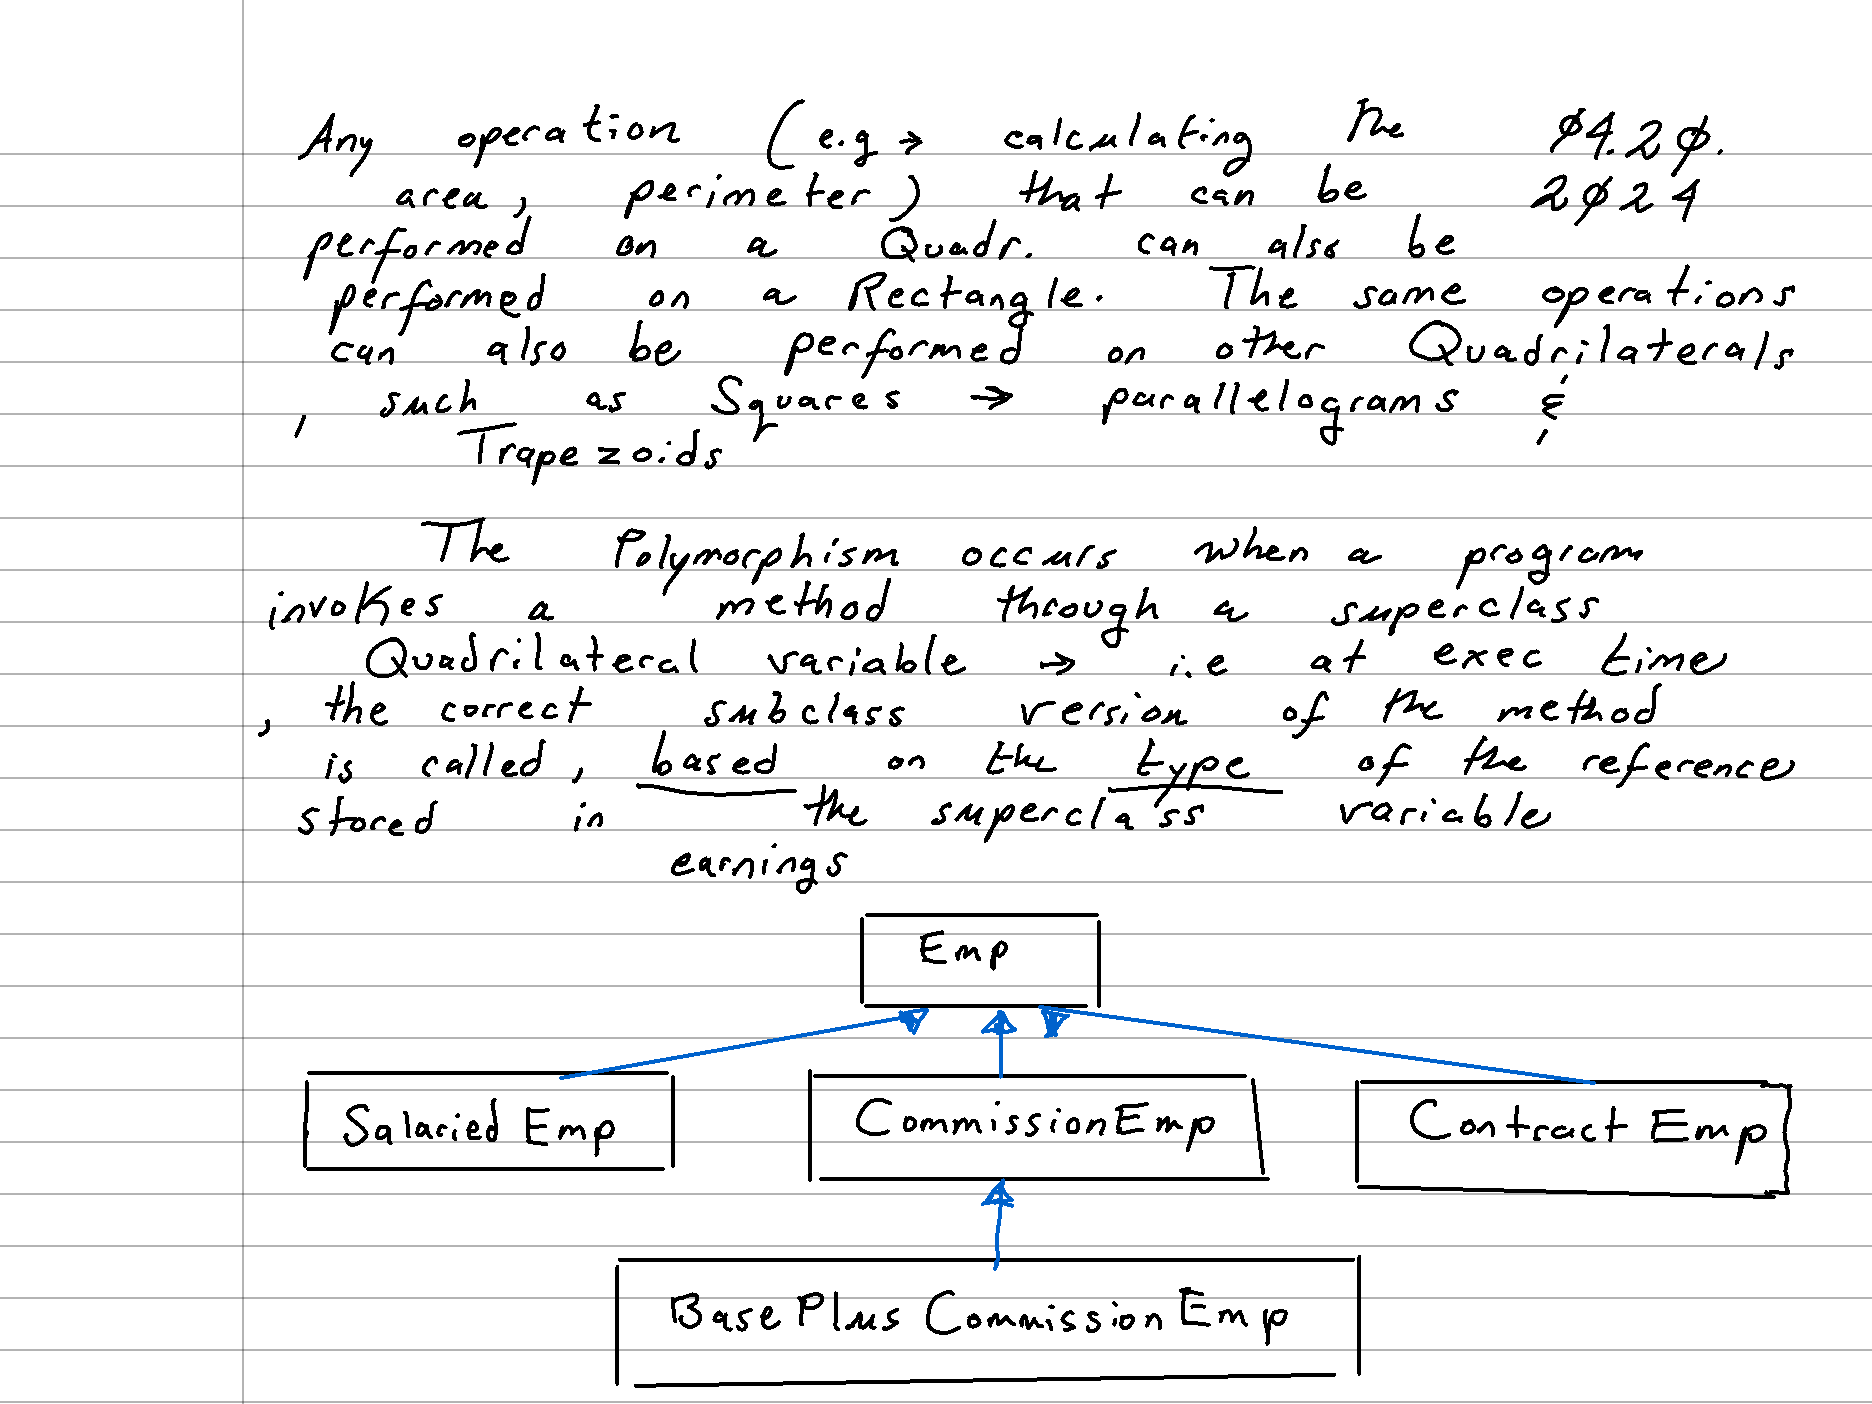 Any operation (e.g → calculating the ø4.2ø.
area, perimeter) that can be 2ø24
performed on a Quadr. can also be
performed on a Rectangle. The same operations
can also be performed on other Quadrilaterals
, such as Squares → parallelograms &
Trapezoids
The Polymorphism occurs when a program
invokes a method through a superclass
Quadrilateral variable → i.e at exec time
, the correct subclass version of the method
is called, based on the type of the reference
stored in the superclass variable
earnings
Emp
Salaried Emp CommissionEmp Contract Emp
Base Plus Commission Emp